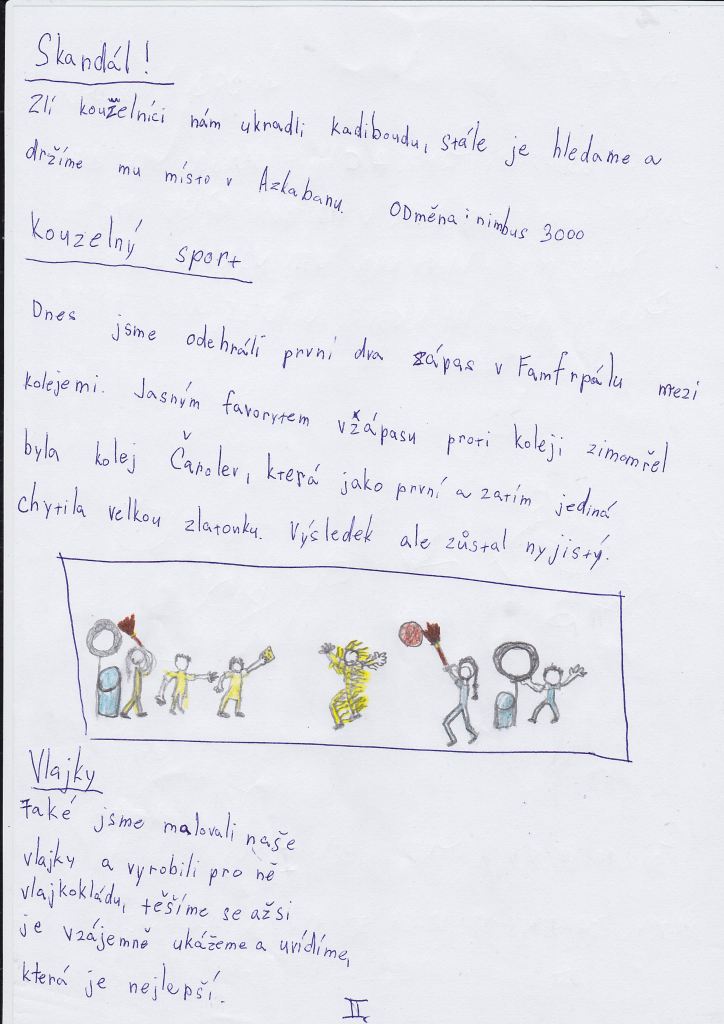 Skandál!
Zlí kouzelníci nám ukradli Kadiboudu, stále je hledame a
držíme mu místo v Azkabanu. Odměna: nimbus 3000
Kouzelný sport
Dnes jsme odehráli první dva zápas v Famfrpálu mezi
kolejemi. Jasným favorytem v zápasu proti koleji zimomřel
byla kolej Čarolev, která jako první a zatím jediná
chytila velkou zlatonku. Výsledek ale zůstal nyjistý.
Vlajky
Také jsme malovali naše
vlajky a vyrobili pro ně
vlajkokládu, těšíme se ažsi
je vzájemně ukážeme a uvidíme,
která je nejlepší.
II.